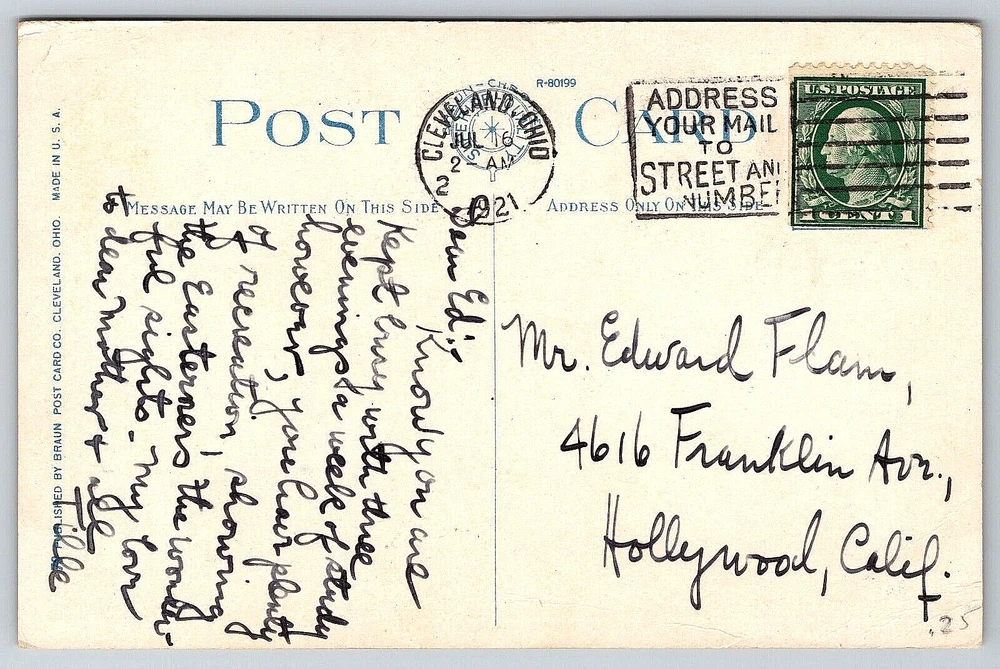 POST CARD
R-80199
CLEVELAND, OHIO
JUL 16
2 AM
1921
ADDRESS
YOUR MAIL
TO
STREET AND
NUMBER
U.S. POSTAGE
1 CENT 1
MESSAGE MAY BE WRITTEN ON THIS SIDE
ADDRESS ONLY ON THIS SIDE
PUBLISHED BY BRAUN POST CARD CO. CLEVELAND, OHIO. MADE IN U. S. A.
Dear Ed:-
Know you are
Kept busy with three
evenings a week of study
however, you have plenty
of recreation, showing
the Easterners the wonder-
ful sights - My love
to dear Mother & all
Tillie
Mr. Edward Flam,
4616 Franklin Ave.,
Hollywood, Calif.
.25